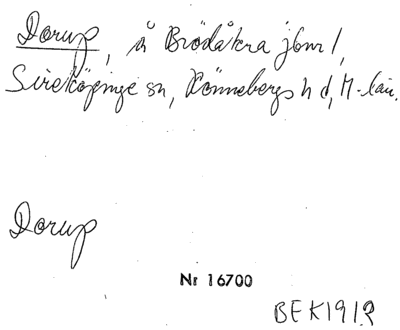 Dorup, å Brödåkra jbnr 1,
Sireköpinge sn, Rönnebergs hd, M-län.
Dorup
Nr 16700
BEK1912